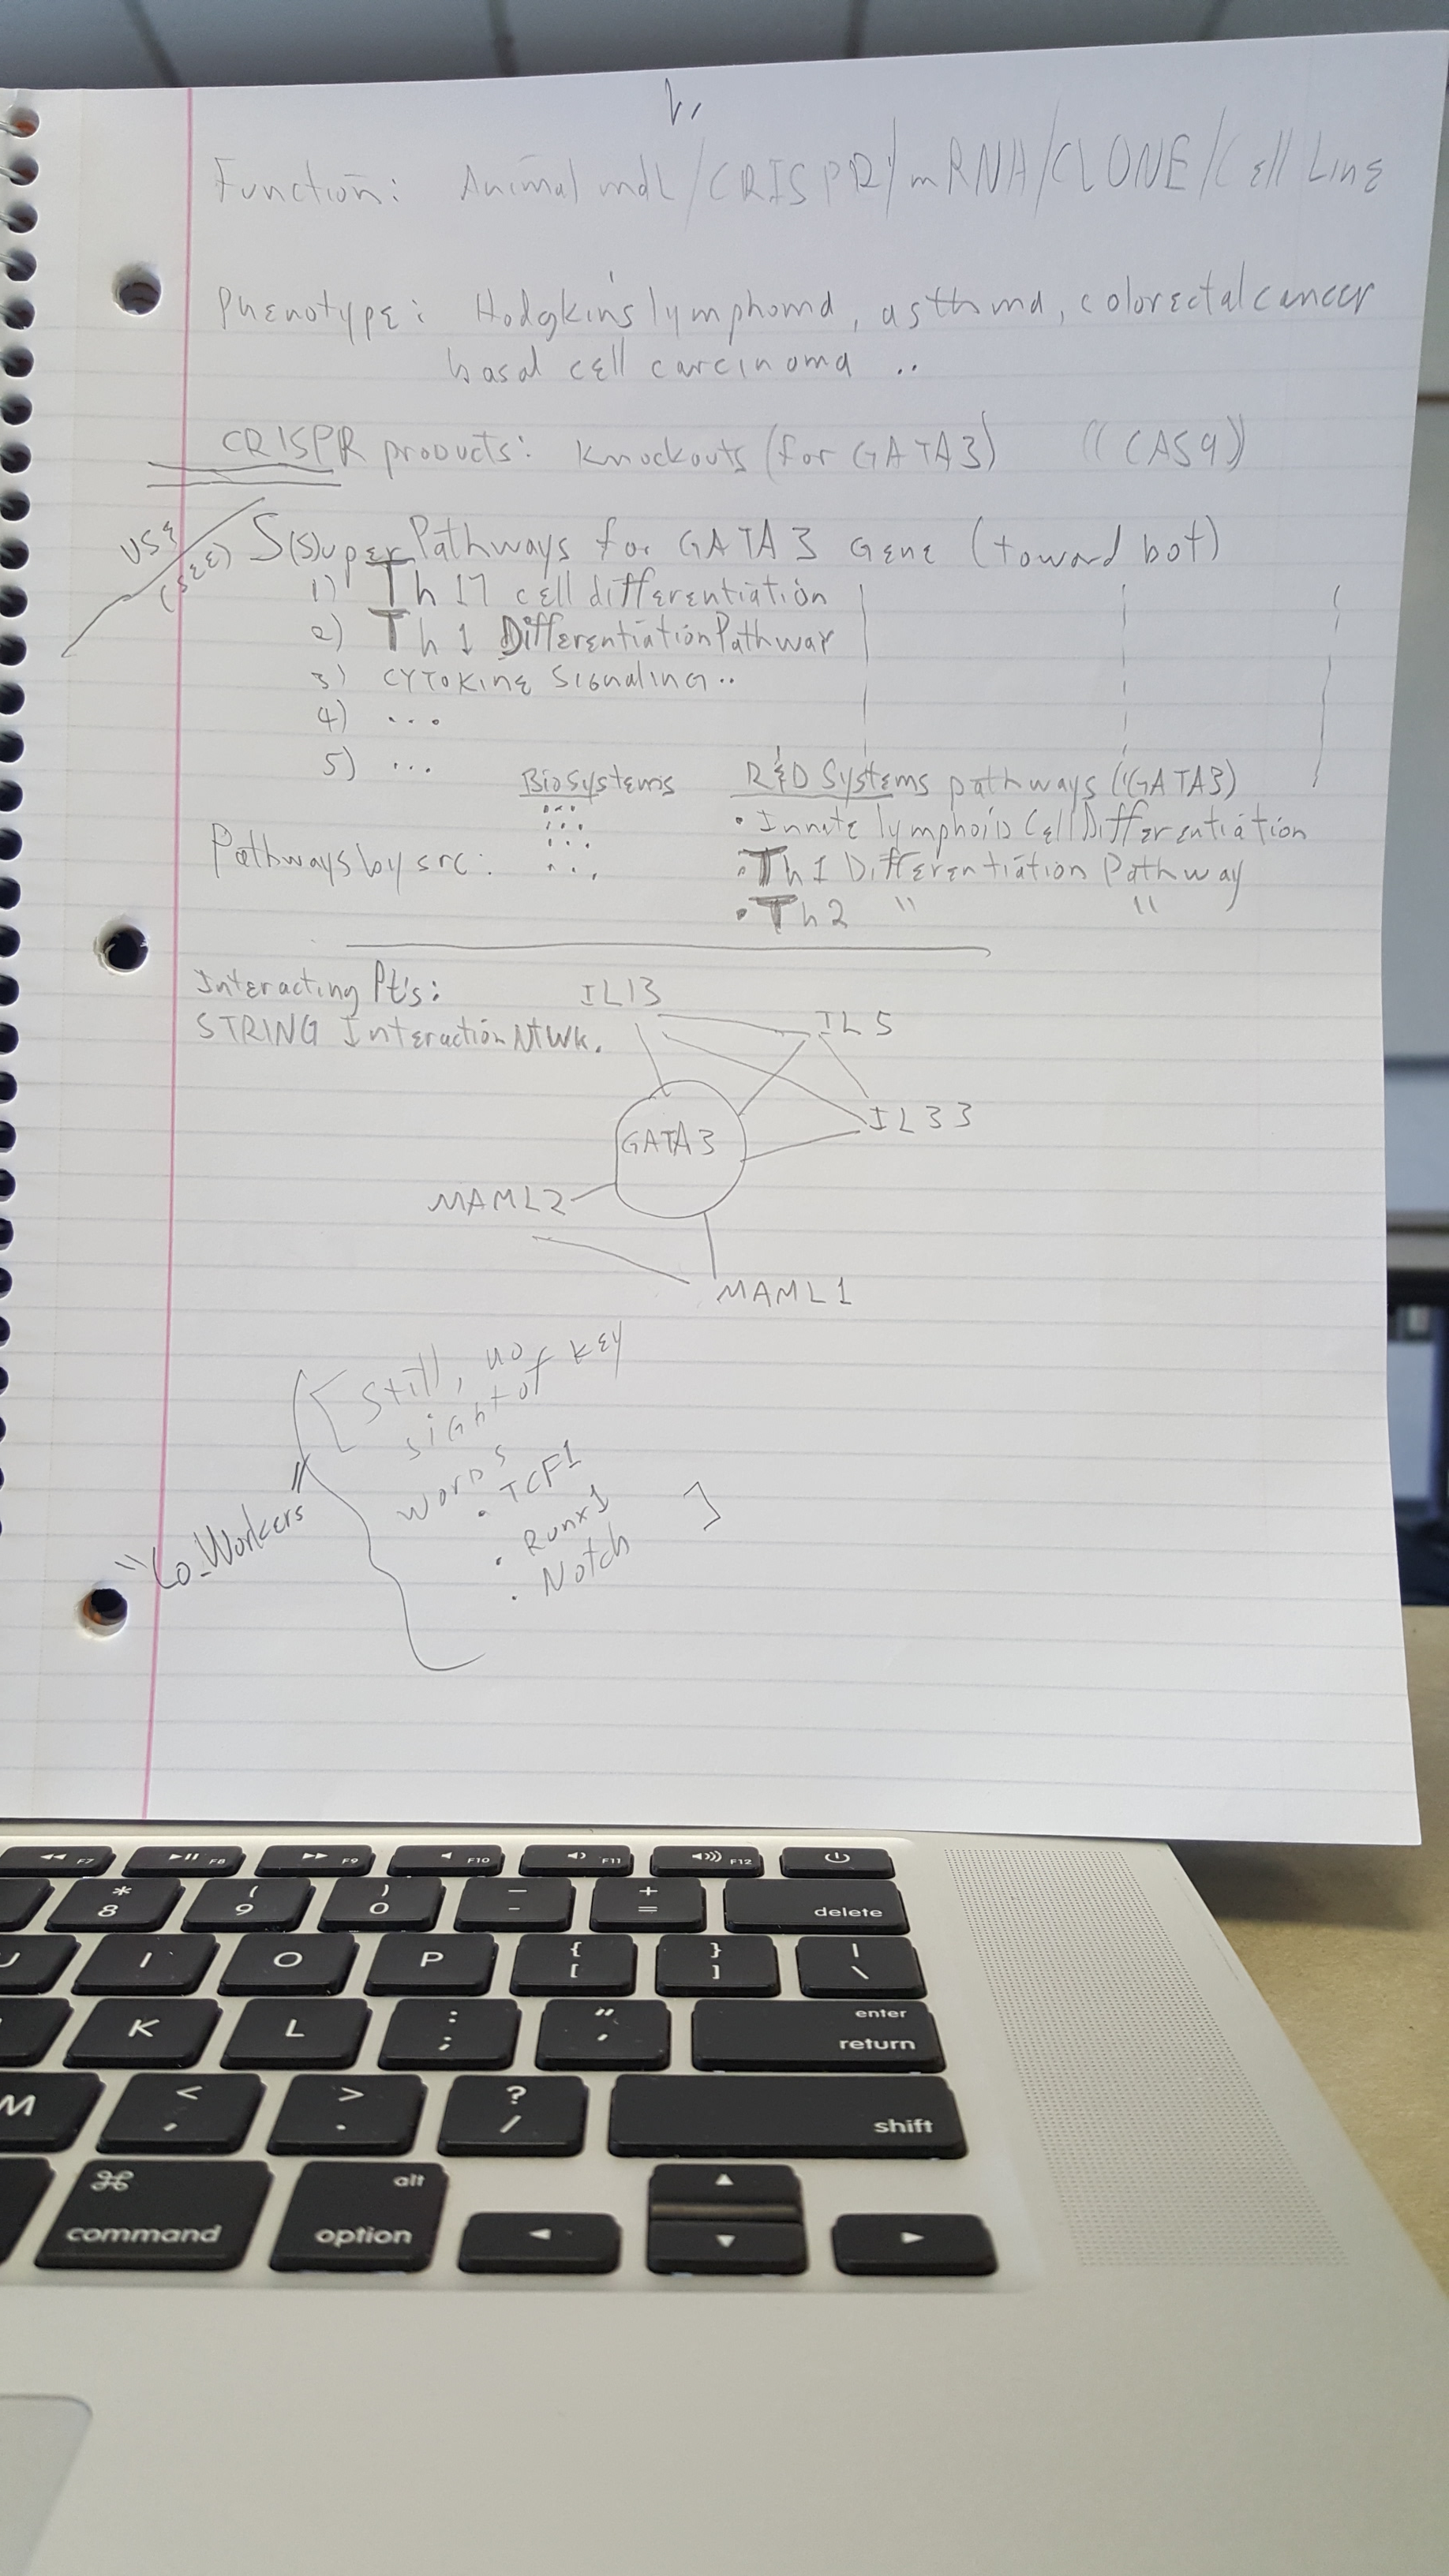 Function: Animal mdl/CRISPR/mRNA/CLONE/Cell Line
Phenotype: Hodgkin's lymphoma, asthma, colorectal cancer
basal cell carcinoma ..
CRISPR products: Knockouts (for GATA3) ((CAS9))
USE
(SEE) S(s)uper Pathways for GATA3 GENE (toward bot)
1) Th 17 cell differentiation
2) Th 1 Differentiation Pathway
3) CYTOKINE SIGNALING..
4) ...
5) ...
BioSystems R&D Systems pathways ((GATA3)
• Innate lymphoid Cell Differentiation
Pathways by src: • Th 1 Differentiation Pathway
• Th 2 " "
Interacting Pt's: IL13
STRING Interaction Ntwk. IL5
IL33
GATA3
MAML2
MAML1
[Still, no
sight of key
words
• TCF1
• Runx1 ]
• Notch
"Co_Workers"
F7 F8 F9 F10 F11 F12
* ( ) — +
8 9 0 - = delete
U I O P { [ } ] | \
K L : ; " ' enter return
M < , > . ? / shift
command alt option